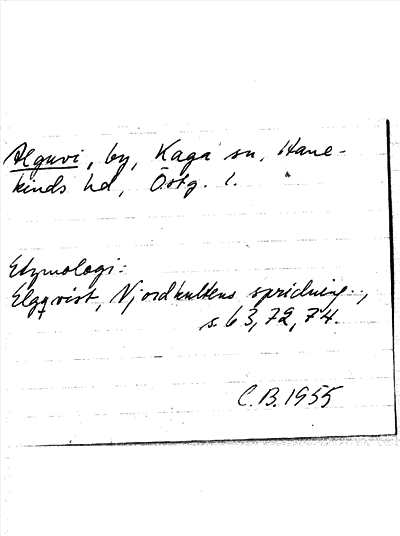 Alguvi, by, Kaga sn, Hane-
kinds hd, Östg. l.
Etymologi:
Elgqvist, Njordkultens spridning,
s. 63, 72, 74.
C.B. 1955